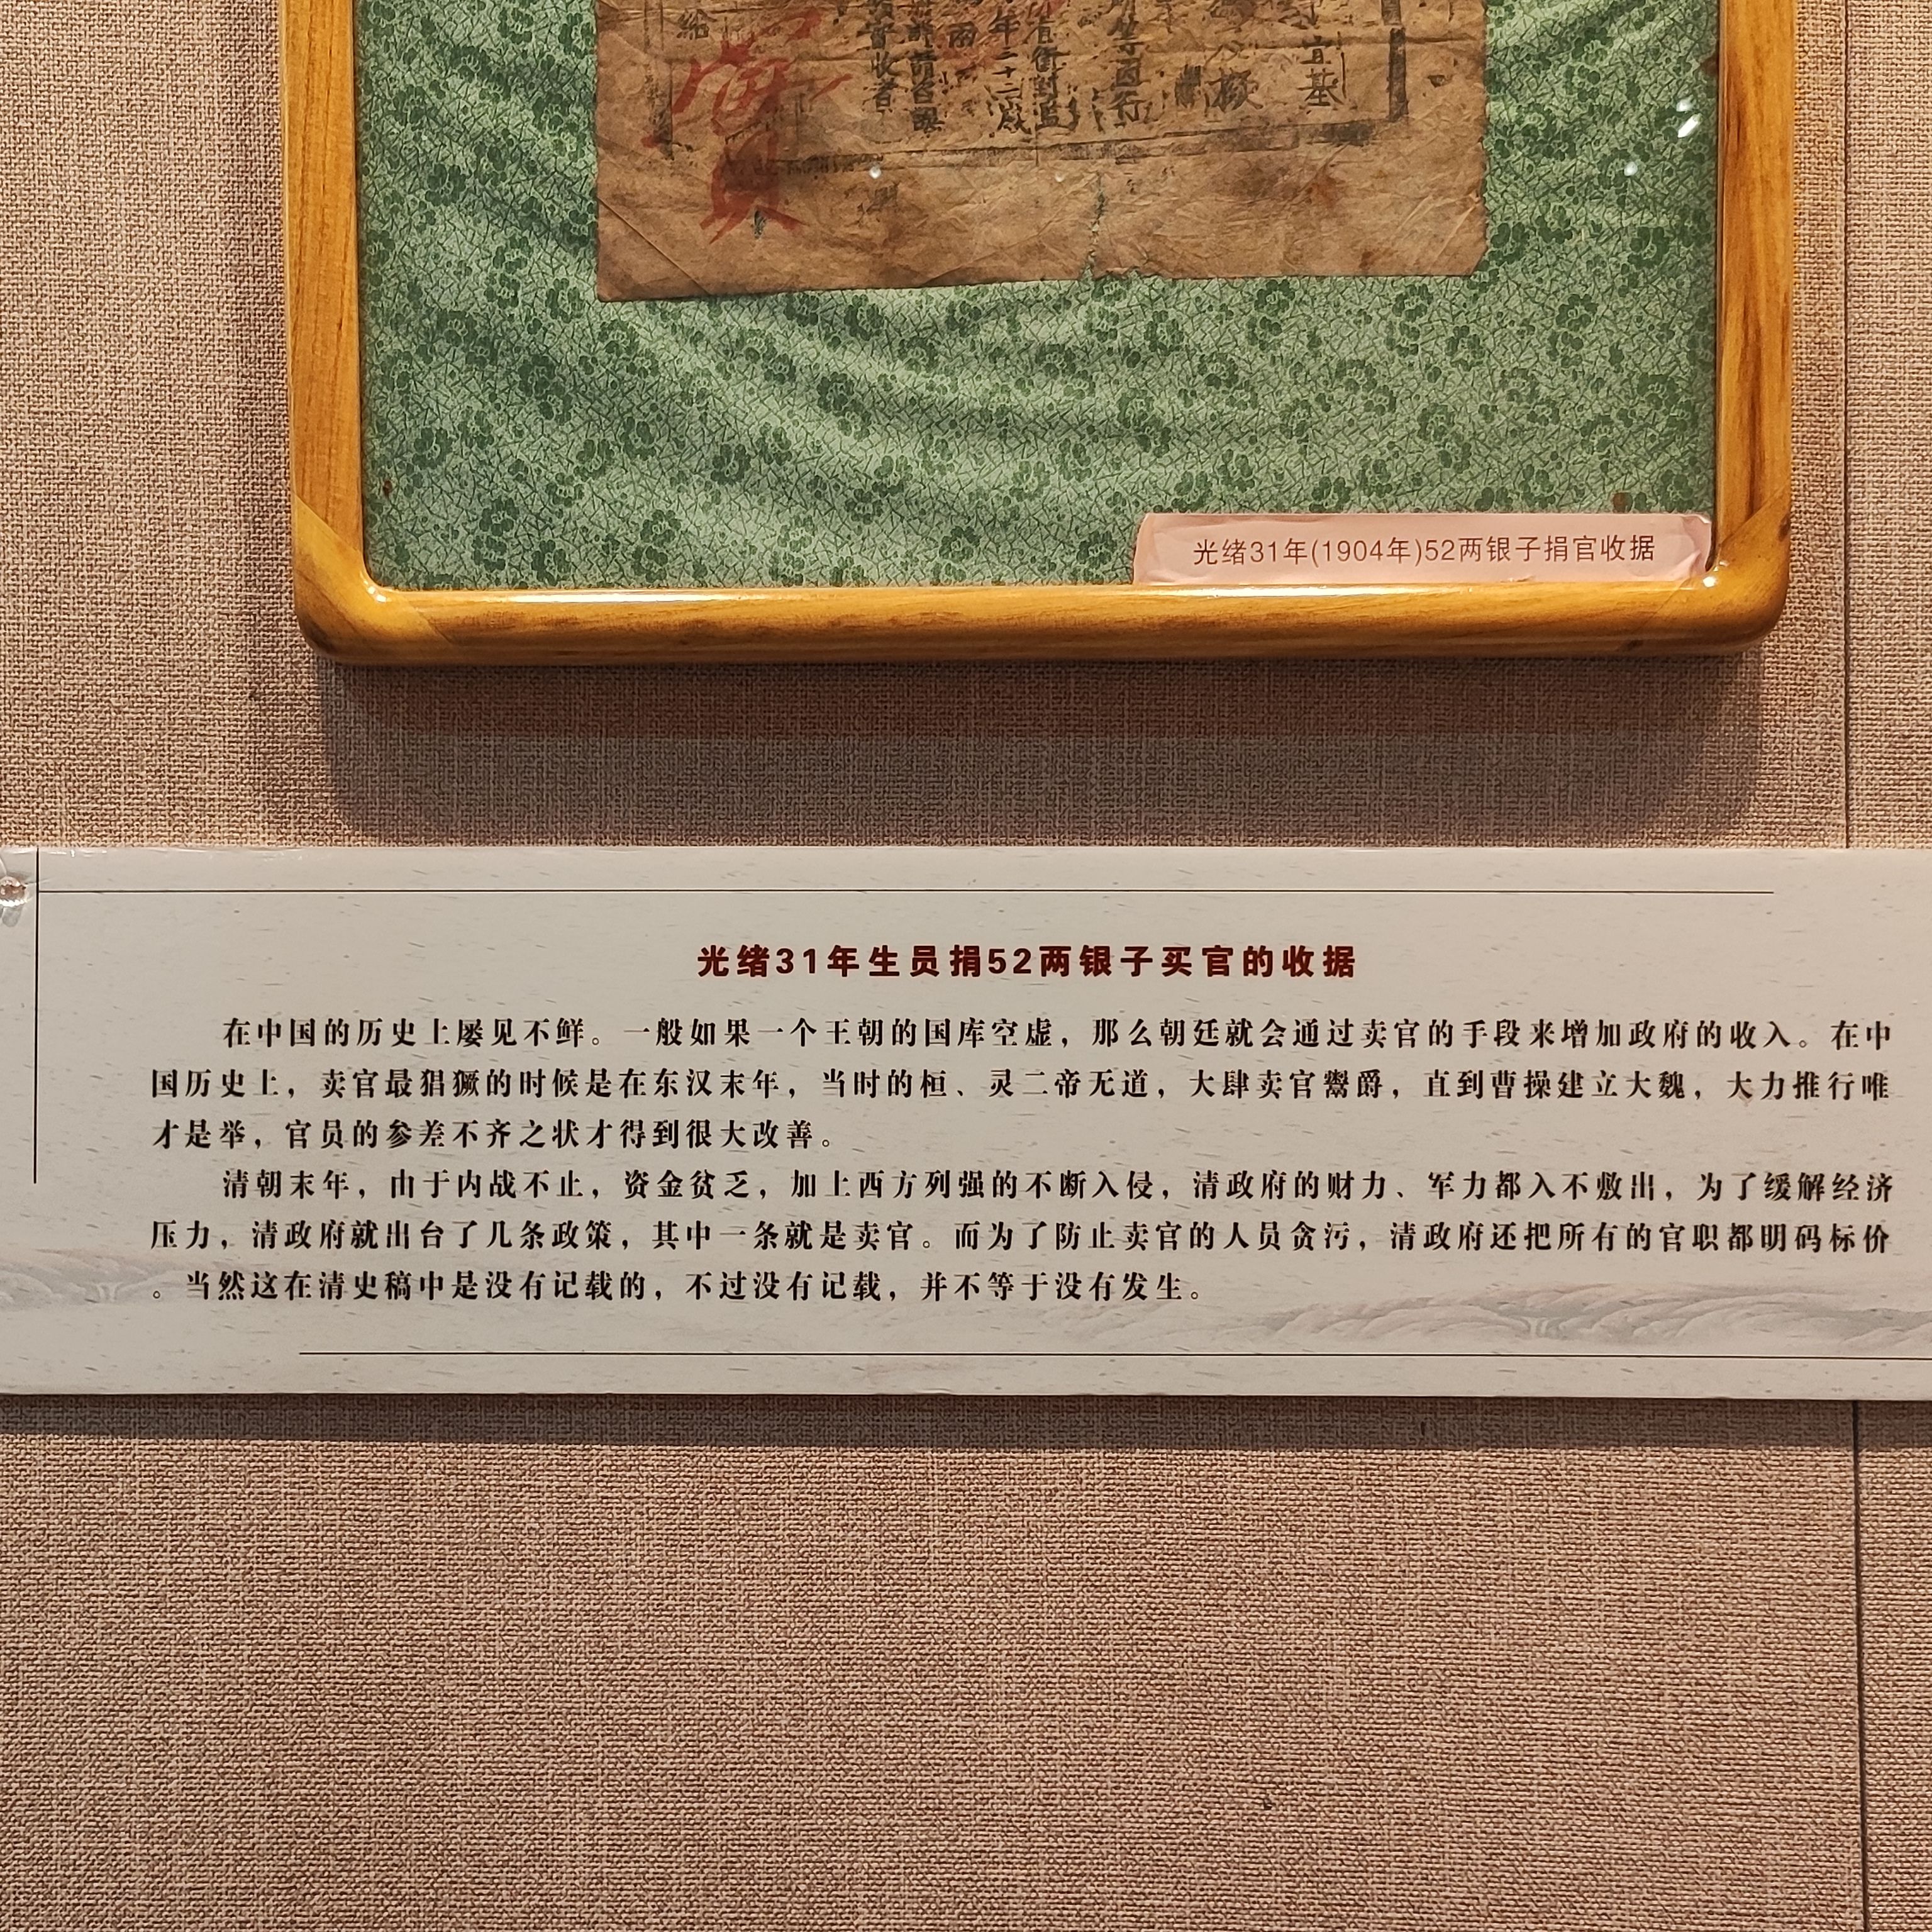 給
年二十二歲
宜基
光绪31年(1904年)52两银子捐官收据
光绪31年生员捐52两银子买官的收据
在中国的历史上屡见不鲜。一般如果一个王朝的国库空虚，那么朝廷就会通过卖官的手段来增加政府的收入。在中
国历史上，卖官最猖獗的时候是在东汉末年，当时的桓、灵二帝无道，大肆卖官鬻爵，直到曹操建立大魏，大力推行唯
才是举，官员的参差不齐之状才得到很大改善。
清朝末年，由于内战不止，资金贫乏，加上西方列强的不断入侵，清政府的财力、军力都入不敷出，为了缓解经济
压力，清政府就出台了几条政策，其中一条就是卖官。而为了防止卖官的人员贪污，清政府还把所有的官职都明码标价
。当然这在清史稿中是没有记载的，不过没有记载，并不等于没有发生。